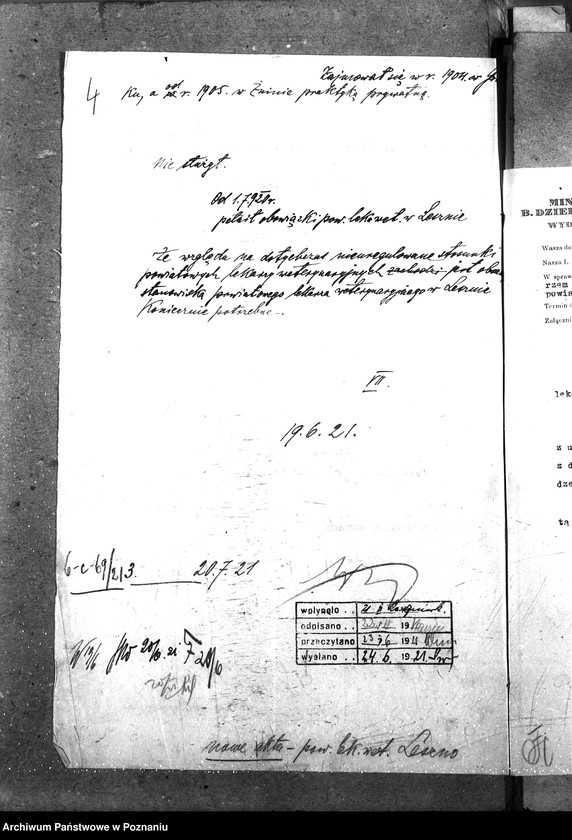 4
Zajmował się w r. 1904. w
ku, a od r. 1905. w Żninie praktyką prywatną.
Nie służył.
Od 1.7.920r.
pełnił obowiązki pow. lek. wet. w Lesznie
Ze względu na dotychczas nieuregulowane stosunki
powiatowych lekarzy weterynaryjnych zachodzi
stanowiska powiatowego lekarza weterynaryjnego w Lesznie
Koniecznie potrzebne.
VII.
19.6.21.
6-c-69/213. 20.7.21
wpłynęło . .
odpisano . . 19
przeczytano 19
wysłano . . 24.6 1921.
nowe akta - pow. lek. wet. Leszno
MIN
B. DZIE
WYD
Wasza da
Nasza l.
W spraw
rzem
powia
Termin
Załączni
lek
z u
z d
dze
tą
Archiwum Państwowe w Poznaniu